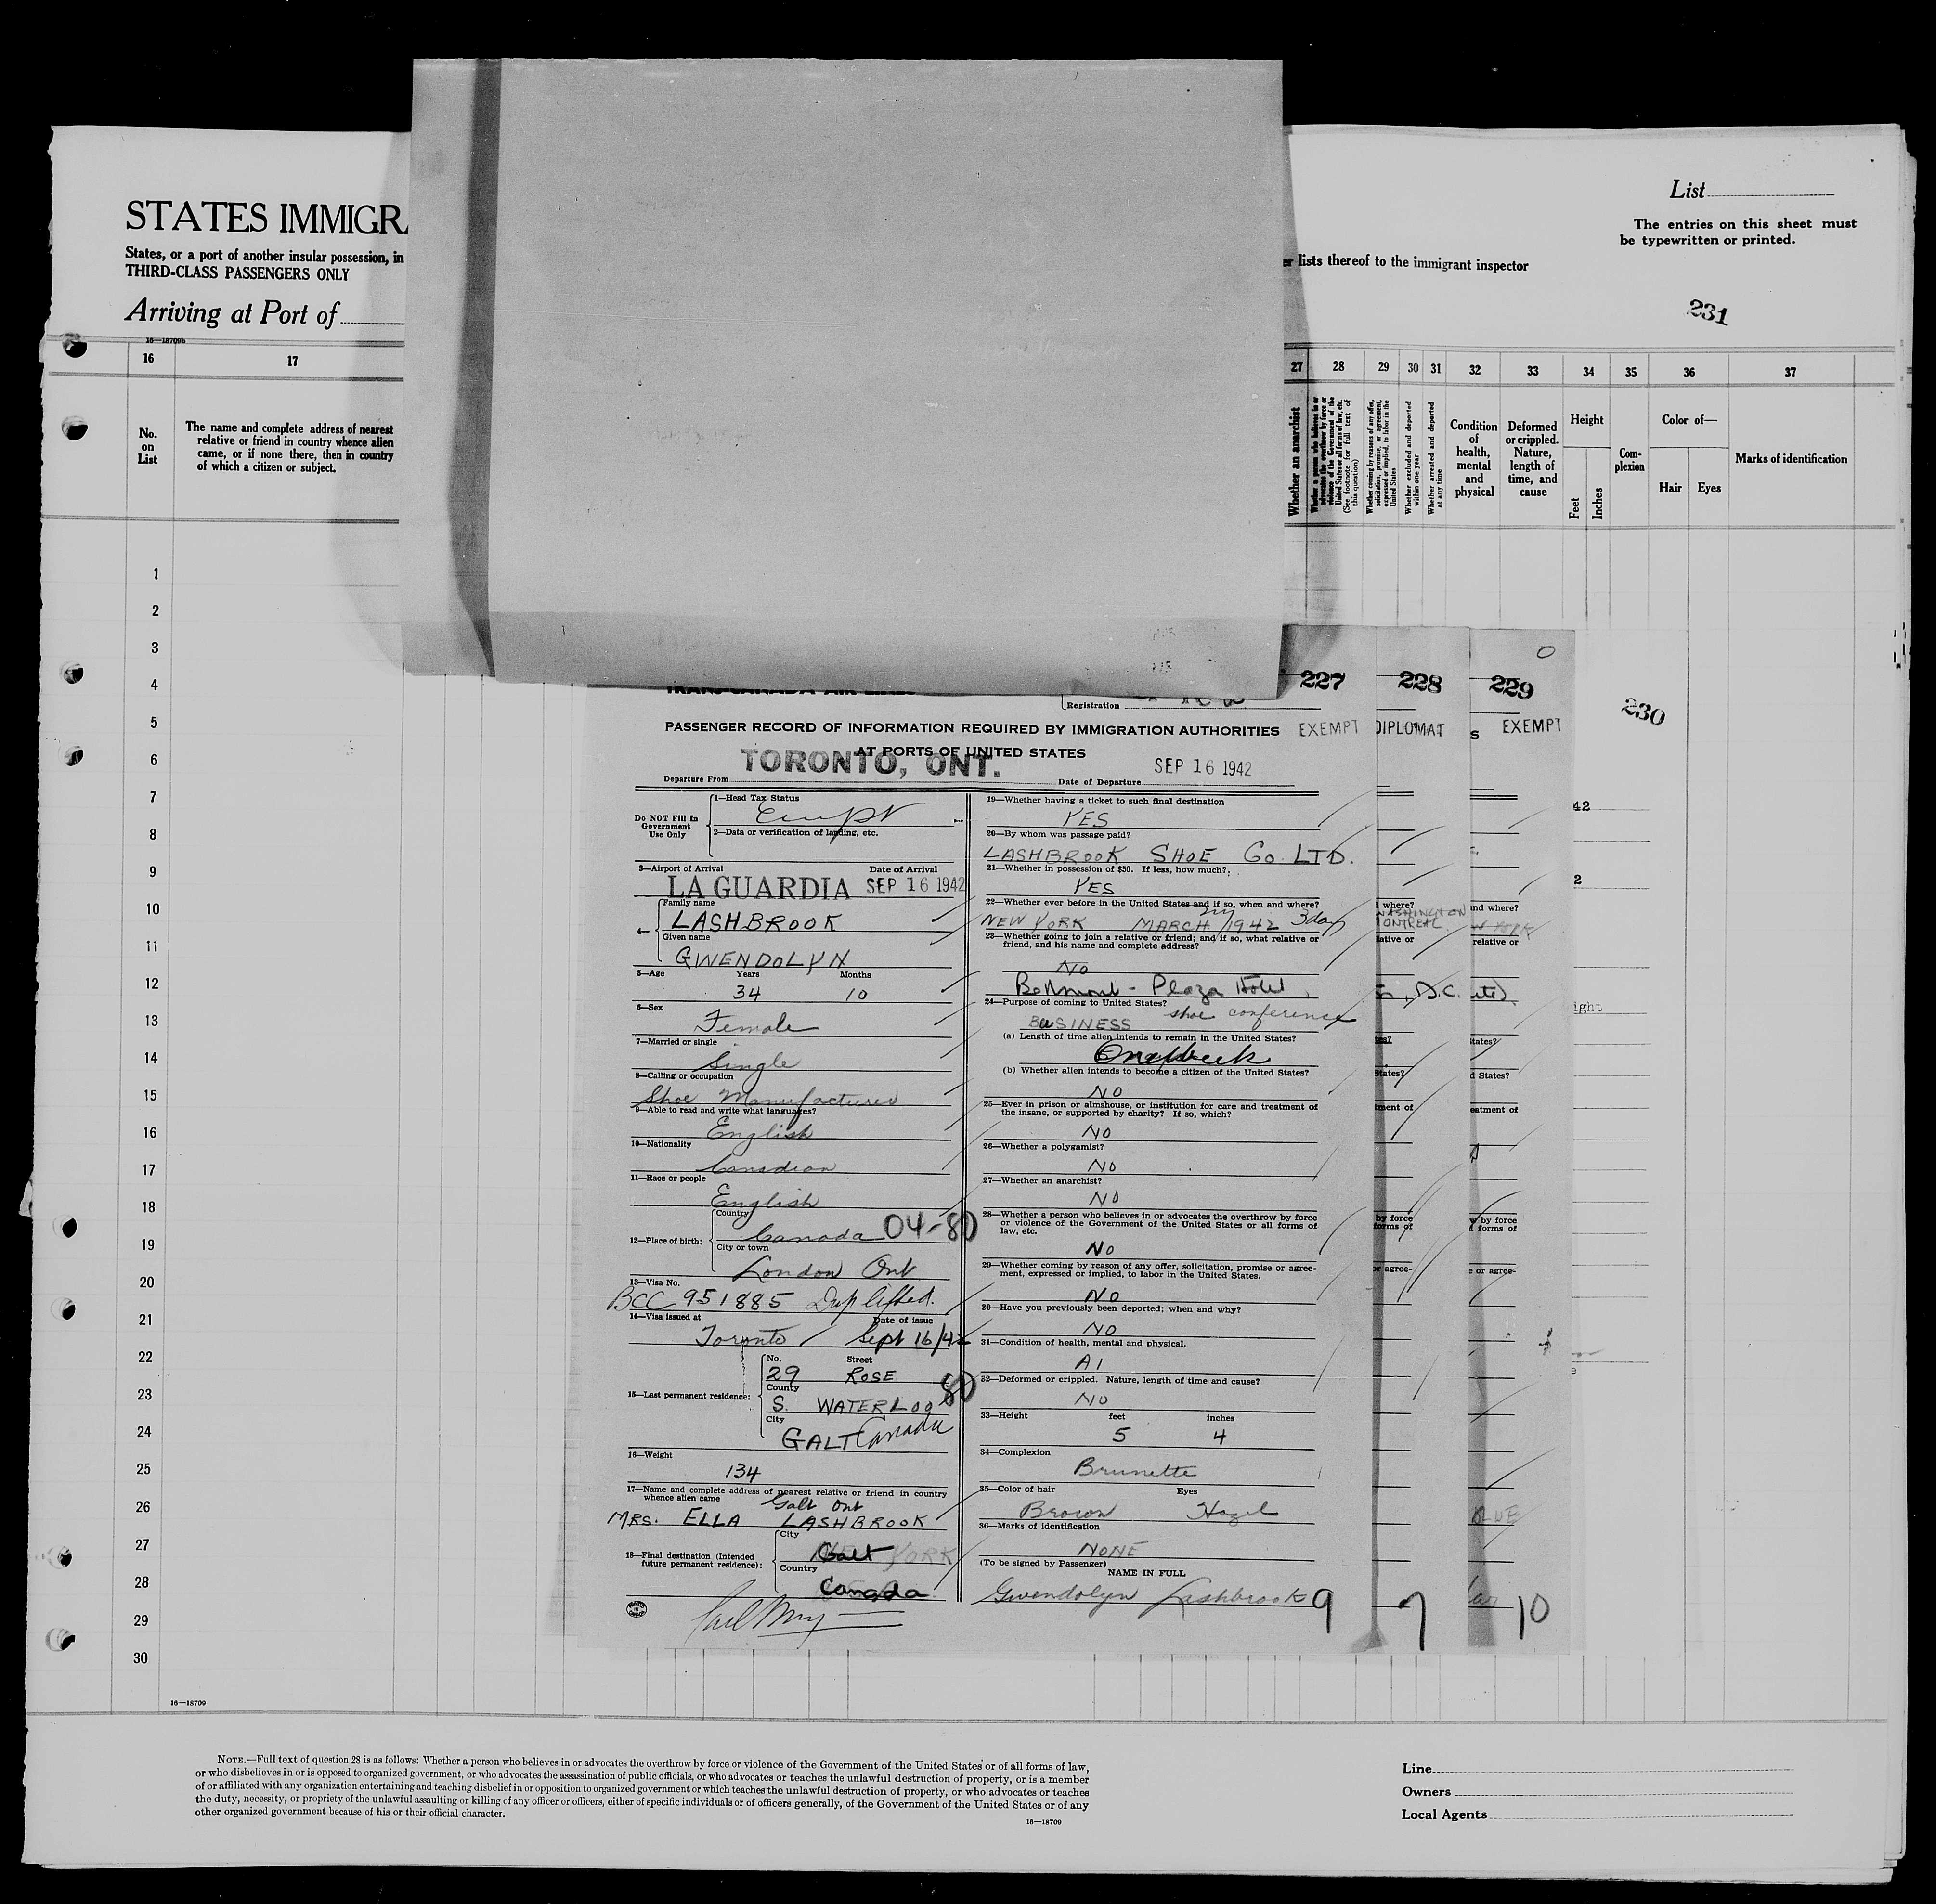 STATES IMMIGRA
States, or a port of another insular possession, in
THIRD-CLASS PASSENGERS ONLY
Arriving at Port of
List
The entries on this sheet must
be typewritten or printed.
er lists thereof to the immigrant inspector
231
16—18709b
16 17
27 28 29 30 31 32 33 34 35 36 37
No.
on
List
The name and complete address of nearest
relative or friend in country whence alien
came, or if none there, then in country
of which a citizen or subject.
Whether an anarchist
Whether a person who believes in or
advocates the overthrow by force or
violence of the Government of the
United States or all forms of law, etc.
(See footnote for full text of
this question)
Whether coming by reasons of any offer,
solicitation, promise, or agreement,
expressed or implied, to labor in the
United States
Whether excluded and deported
within one year
Whether arrested and deported
at any time
Condition
of
health,
mental
and
physical
Deformed
or crippled.
Nature,
length of
time, and
cause
Height
Feet
Inches
Com-
plexion
Color of—
Hair Eyes
Marks of identification
1
2
3
4
5
6
7
8
9
10
11
12
13
14
15
16
17
18
19
20
21
22
23
24
25
26
27
28
29
30
16—18709
227 228 229
230
Registration
PASSENGER RECORD OF INFORMATION REQUIRED BY IMMIGRATION AUTHORITIES
AT PORTS OF UNITED STATES
EXEMPT DIPLOMAT s EXEMPT
Departure From TORONTO, ONT. Date of Departure SEP 16 1942
Do NOT Fill In
Government
Use Only
1—Head Tax Status
2—Data or verification of landing, etc.
3—Airport of Arrival Date of Arrival
LA GUARDIA SEP 16 1942
4—
Family name
LASHBROOK
Given name
GWENDOLYN
5—Age Years Months
34 10
6—Sex
Female
7—Married or single
Single
8—Calling or occupation
Shoe Manufacturer
9—Able to read and write what languages?
English
10—Nationality
Canadian
11—Race or people
English
12—Place of birth:
Country
Canada 04-80
City or town
London Ont
13—Visa No.
BCC 951885
14—Visa issued at Date of issue
Toronto Sept 16/42
15—Last permanent residence:
No. Street
29 ROSE
County
S. WATERLOO 80
City
GALT Canada
16—Weight
134
17—Name and complete address of nearest relative or friend in country
whence alien came
Galt Ont
MRS. ELLA LASHBROOK
18—Final destination (Intended
future permanent residence):
City
Galt
Country
Canada
19—Whether having a ticket to such final destination
YES
20—By whom was passage paid?
LASHBROOK SHOE Co. LTD.
21—Whether in possession of $50. If less, how much?
YES
22—Whether ever before in the United States and if so, when and where?
NEW YORK MARCH 1942 3 days
23—Whether going to join a relative or friend; and if so, what relative or
friend, and his name and complete address?
No
Belmont - Plaza Hotel
24—Purpose of coming to United States?
BUSINESS shoe conference
(a) Length of time alien intends to remain in the United States?
One week
(b) Whether alien intends to become a citizen of the United States?
NO
25—Ever in prison or almshouse, or institution for care and treatment of
the insane, or supported by charity? If so, which?
NO
26—Whether a polygamist?
NO
27—Whether an anarchist?
NO
28—Whether a person who believes in or advocates the overthrow by force
or violence of the Government of the United States or all forms of
law, etc.
No
29—Whether coming by reason of any offer, solicitation, promise or agree-
ment, expressed or implied, to labor in the United States.
NO
30—Have you previously been deported; when and why?
NO
31—Condition of health, mental and physical.
A1
32—Deformed or crippled. Nature, length of time and cause?
NO
33—Height feet inches
5 4
34—Complexion
Brunette
35—Color of hair Eyes
Brown Hazel
36—Marks of identification
NONE
(To be signed by Passenger)
NAME IN FULL
Gwendolyn Lashbrook 9 7 10
NOTE.—Full text of question 28 is as follows: Whether a person who believes in or advocates the overthrow by force or violence of the Government of the United States or of all forms of law,
or who disbelieves in or is opposed to organized government, or who advocates the assassination of public officials, or who advocates or teaches the unlawful destruction of property, or is a member
of or affiliated with any organization entertaining and teaching disbelief in or opposition to organized government or which teaches the unlawful destruction of property, or who advocates or teaches
the duty, necessity, or propriety of the unlawful assaulting or killing of any officer or officers, either of specific individuals or of officers generally, of the Government of the United States or of any
other organized government because of his or their official character.
16—18709
Line
Owners
Local Agents